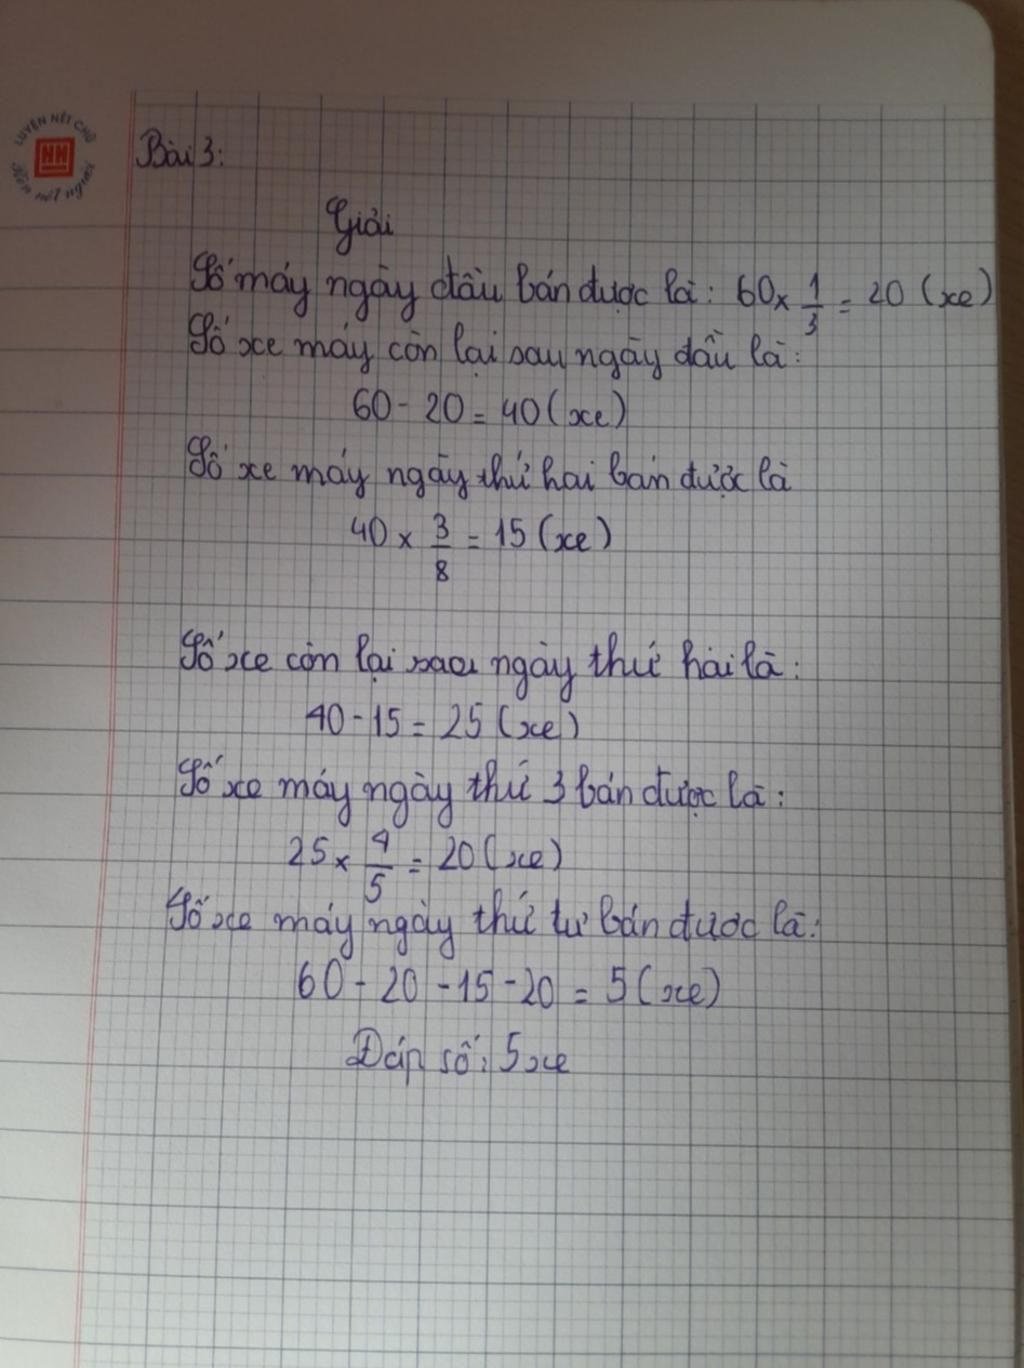 LUYỆN NÉT CHỮ
HN
Rèn nết người
Bài 3:
Giải
Số máy ngày đầu bán được là: 60 x 1/3 = 20 (xe)
Số xe máy còn lại sau ngày đầu là:
60 - 20 = 40 (xe)
Số xe máy ngày thứ hai bán được là
40 x 3/8 = 15 (xe)
Số xe còn lại sau ngày thứ hai là:
40 - 15 = 25 (xe)
Số xe máy ngày thứ 3 bán được là:
25 x 4/5 = 20 (xe)
Số xe máy ngày thứ tư bán được là:
60 - 20 - 15 - 20 = 5 (xe)
Đáp số: 5 xe